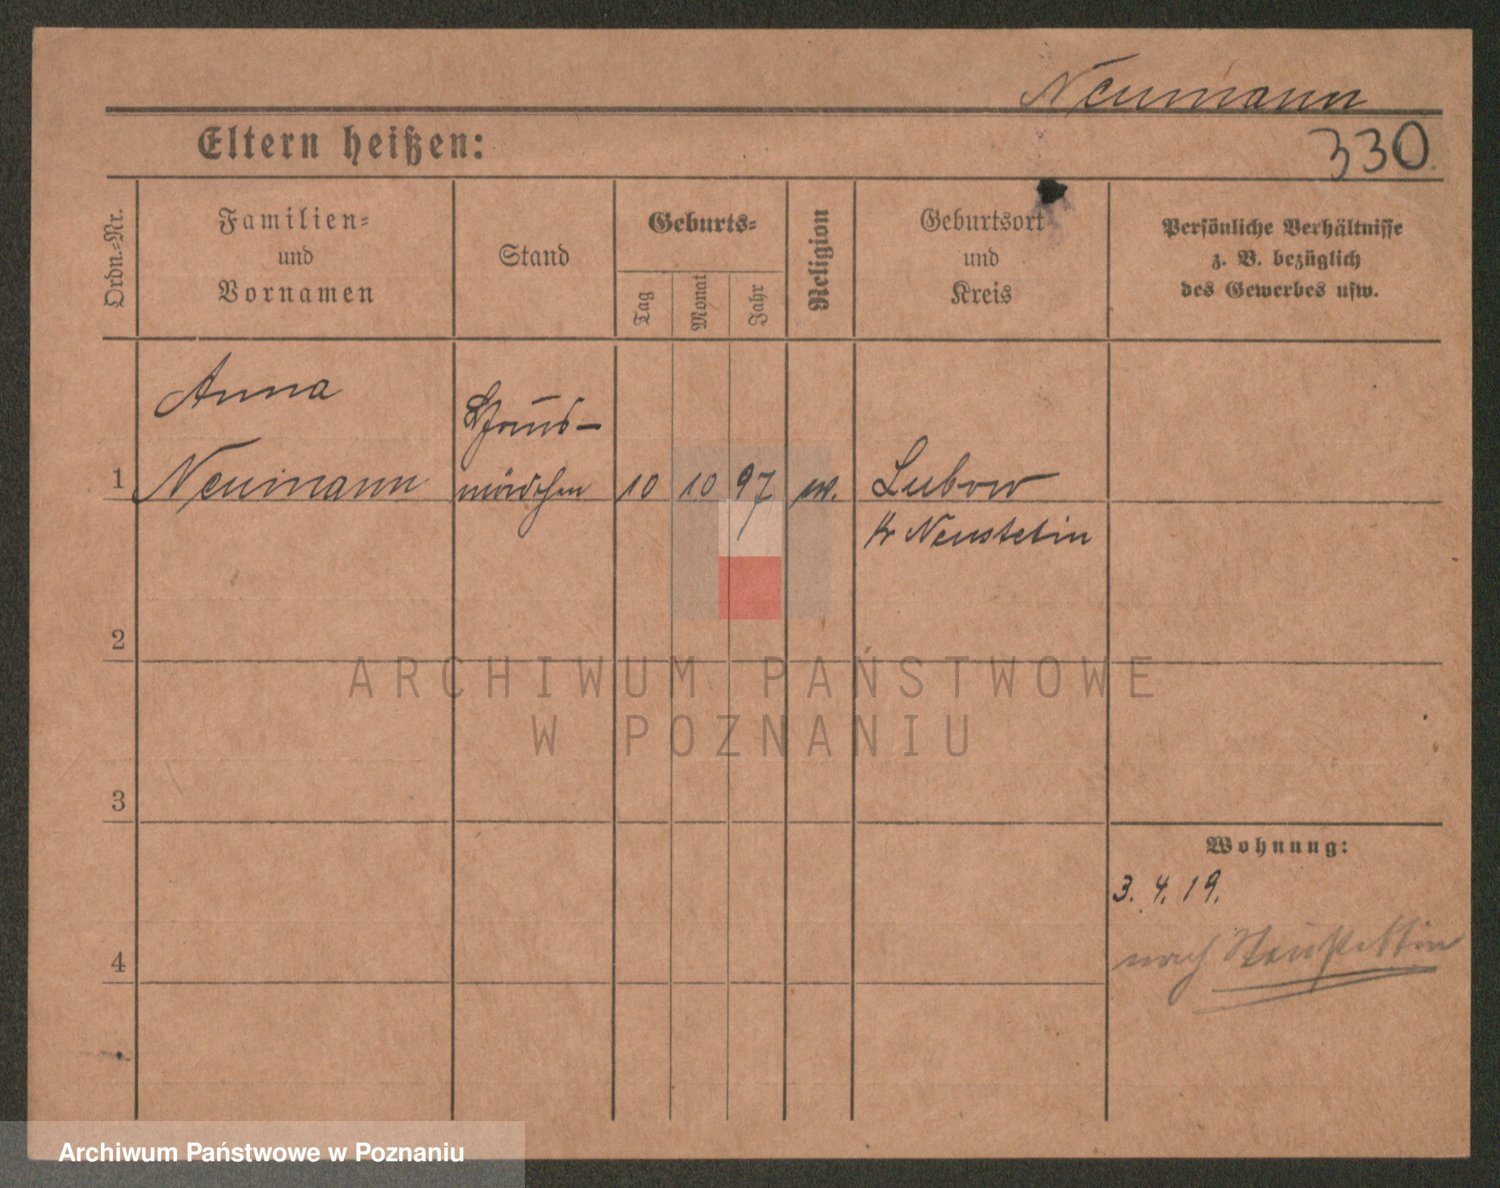 Neumann
Eltern heißen:
330.
Ordn.=Nr.
Familien=
und
Vornamen
Stand
Geburts=
Tag
Monat
Jahr
Religion
Geburtsort
und
Kreis
Persönliche Verhältnisse
z. B. bezüglich
des Gewerbes usw.
Anna
Haus-
1
Neumann
mädchen
10
10
97
Lubow
Kr Neustetin
2
ARCHIWUM PAŃSTWOWE
W POZNANIU
3
Wohnung:
3. 4. 19.
nach Neustettin
4
Archiwum Państwowe w Poznaniu